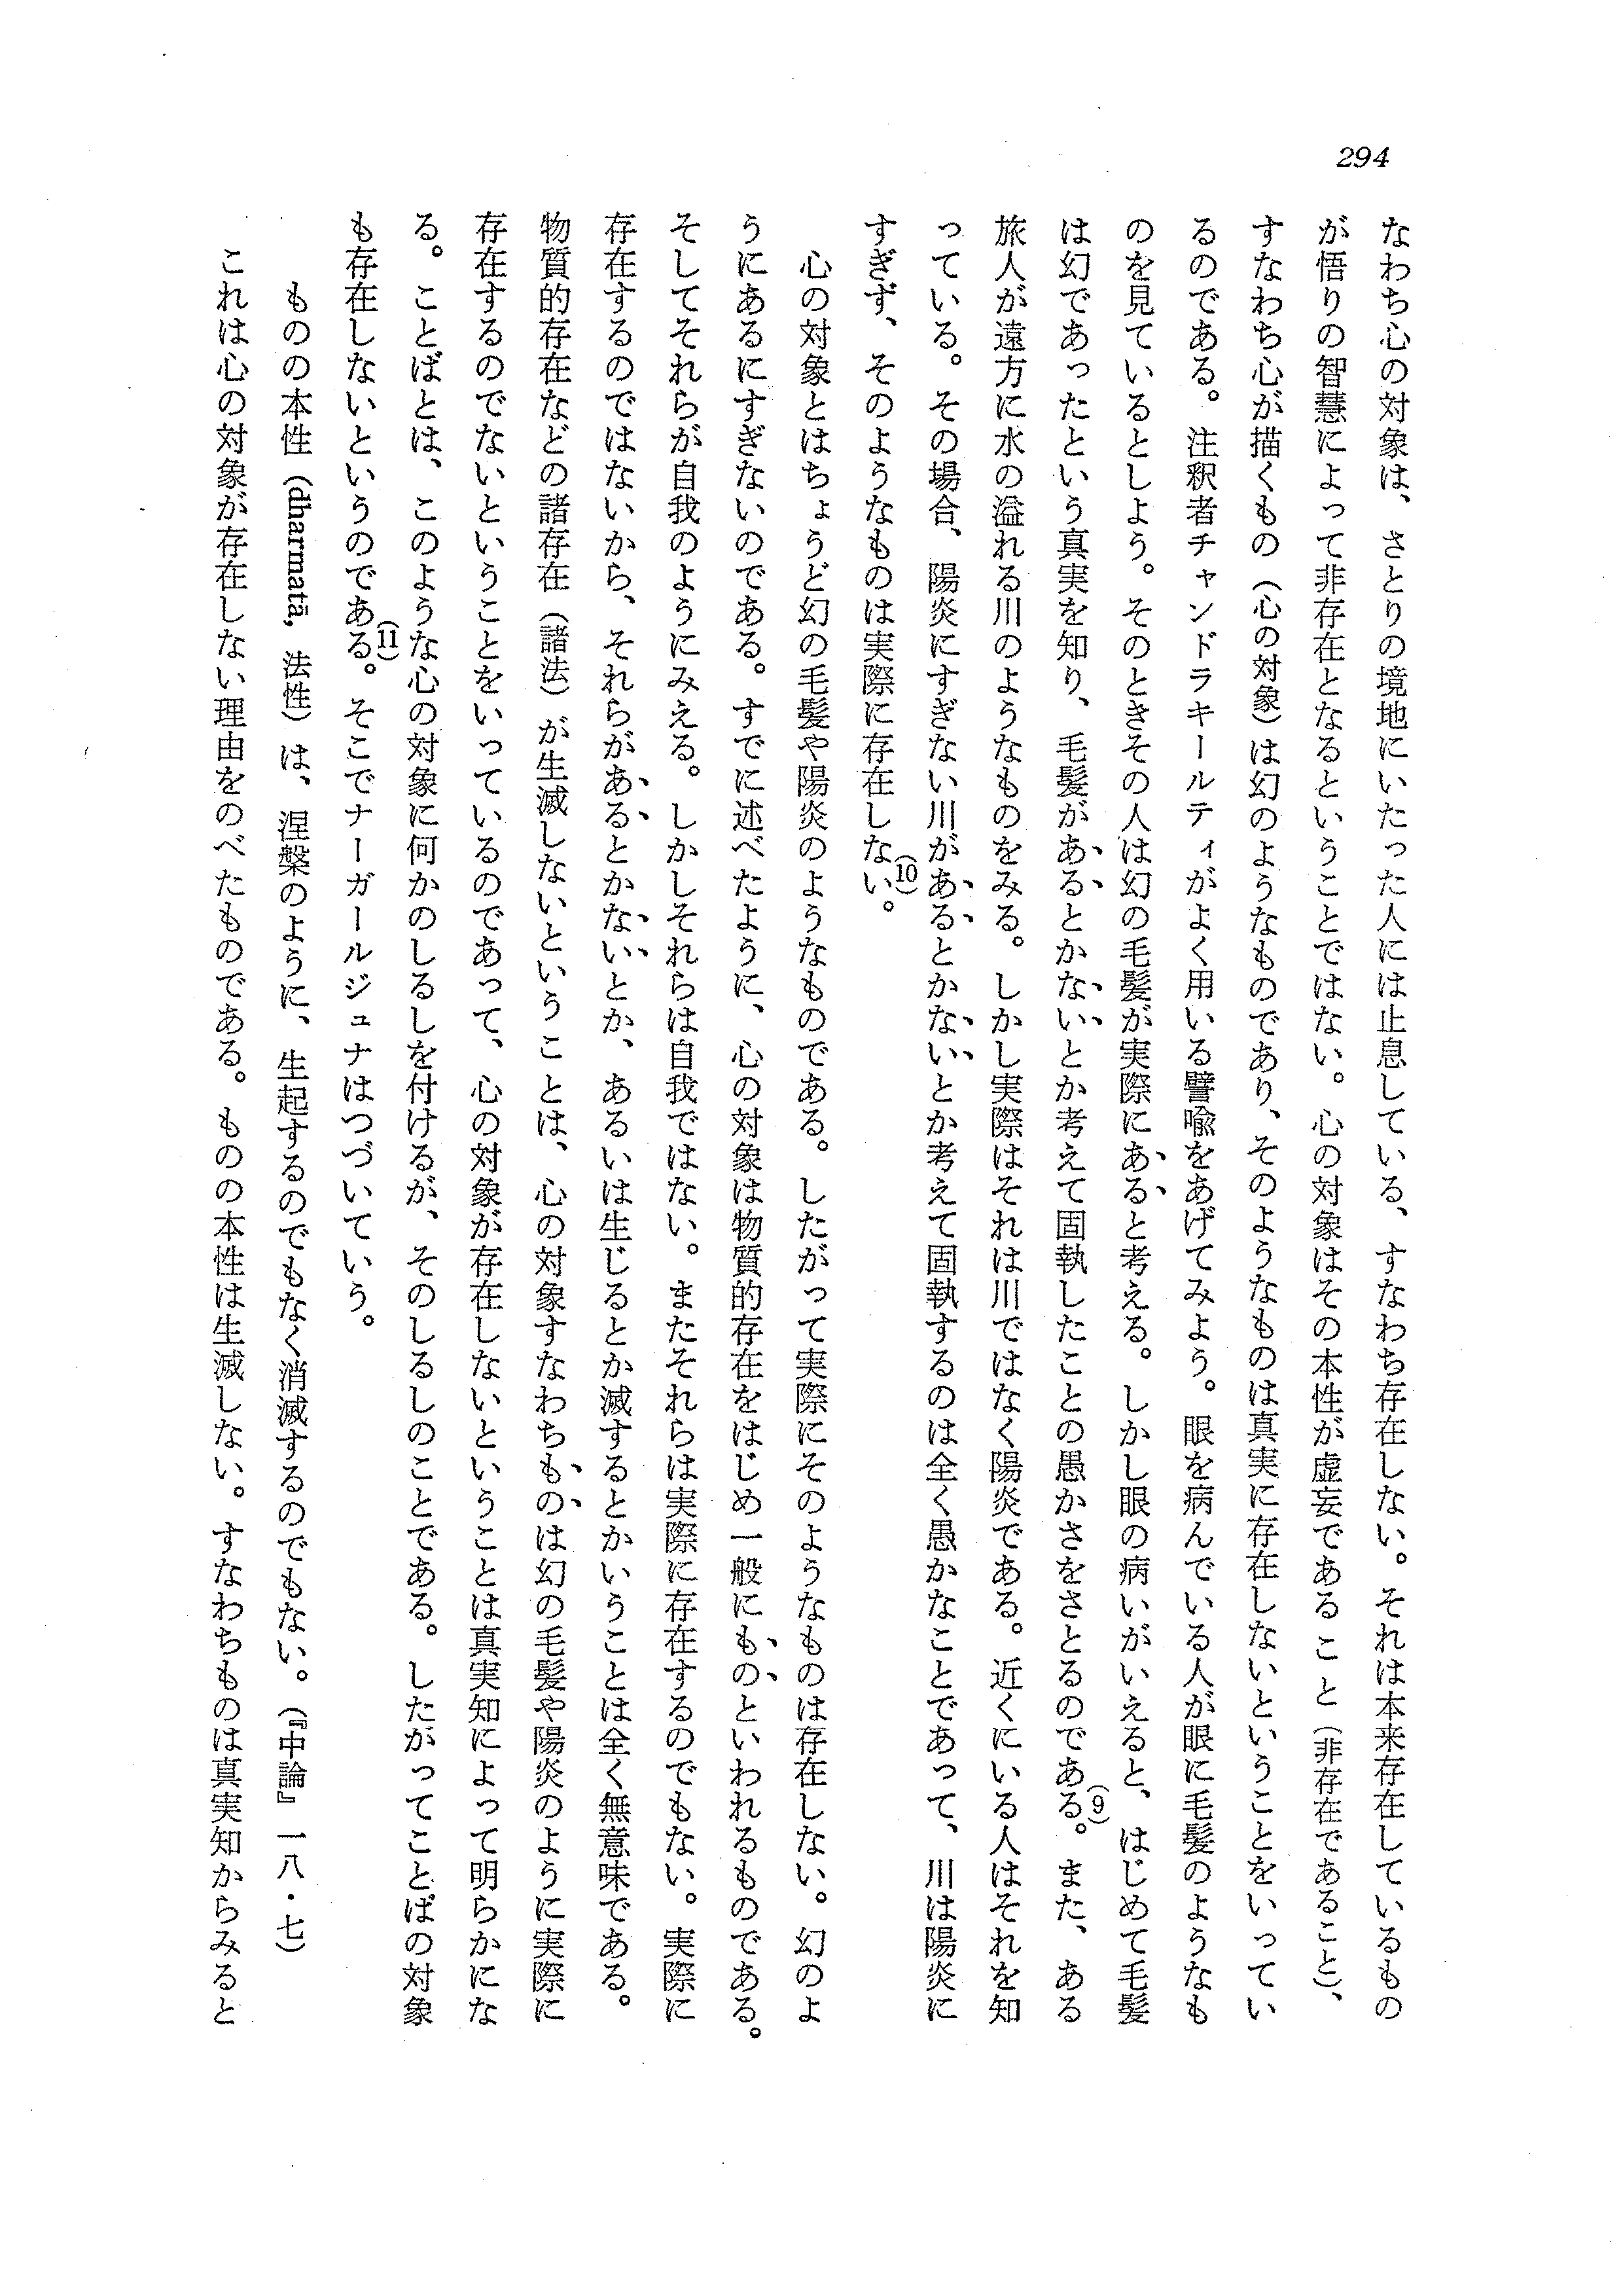 294
なわち心の対象は、さとりの境地にいたった人には止息している、すなわち存在しない。それは本来存在しているもの
が悟りの智慧によって非存在となるということではない。心の対象はその本性が虚妄であること（非存在であること）、
すなわち心が描くもの（心の対象）は幻のようなものであり、そのようなものは真実に存在しないということをいってい
るのである。注釈者チャンドラキールティがよく用いる譬喩をあげてみよう。眼を病んでいる人が眼に毛髪のようなも
のを見ているとしよう。そのときその人は幻の毛髪が実際にあると考える。しかし眼の病いがいえると、はじめて毛髪
は幻であったという真実を知り、毛髪があるとかないとか考えて固執したことの愚かさをさとるのである(9)。また、ある
旅人が遠方に水の溢れる川のようなものをみる。しかし実際はそれは川ではなく陽炎である。近くにいる人はそれを知
っている。その場合、陽炎にすぎない川があるとかないとか考えて固執するのは全く愚かなことであって、川は陽炎に
すぎず、そのようなものは実際に存在しない(10)。
心の対象とはちょうど幻の毛髪や陽炎のようなものである。したがって実際にそのようなものは存在しない。幻のよ
うにあるにすぎないのである。すでに述べたように、心の対象は物質的存在をはじめ一般にものといわれるものである。
そしてそれらが自我のようにみえる。しかしそれらは自我ではない。またそれらは実際に存在するのでもない。実際に
存在するのではないから、それらがあるとかないとか、あるいは生じるとか滅するとかいうことは全く無意味である。
物質的存在などの諸存在（諸法）が生滅しないということは、心の対象すなわちものは幻の毛髪や陽炎のように実際に
存在するのでないということをいっているのであって、心の対象が存在しないということは真実知によって明らかにな
る。ことばとは、このような心の対象に何かのしるしを付けるが、そのしるしのことである。したがってことばの対象
も存在しないというのである(11)。そこでナーガールジュナはつづいていう。
ものの本性（dharmatā, 法性）は、涅槃のように、生起するのでもなく消滅するのでもない。（『中論』一八・七）
これは心の対象が存在しない理由をのべたものである。ものの本性は生滅しない。すなわちものは真実知からみると